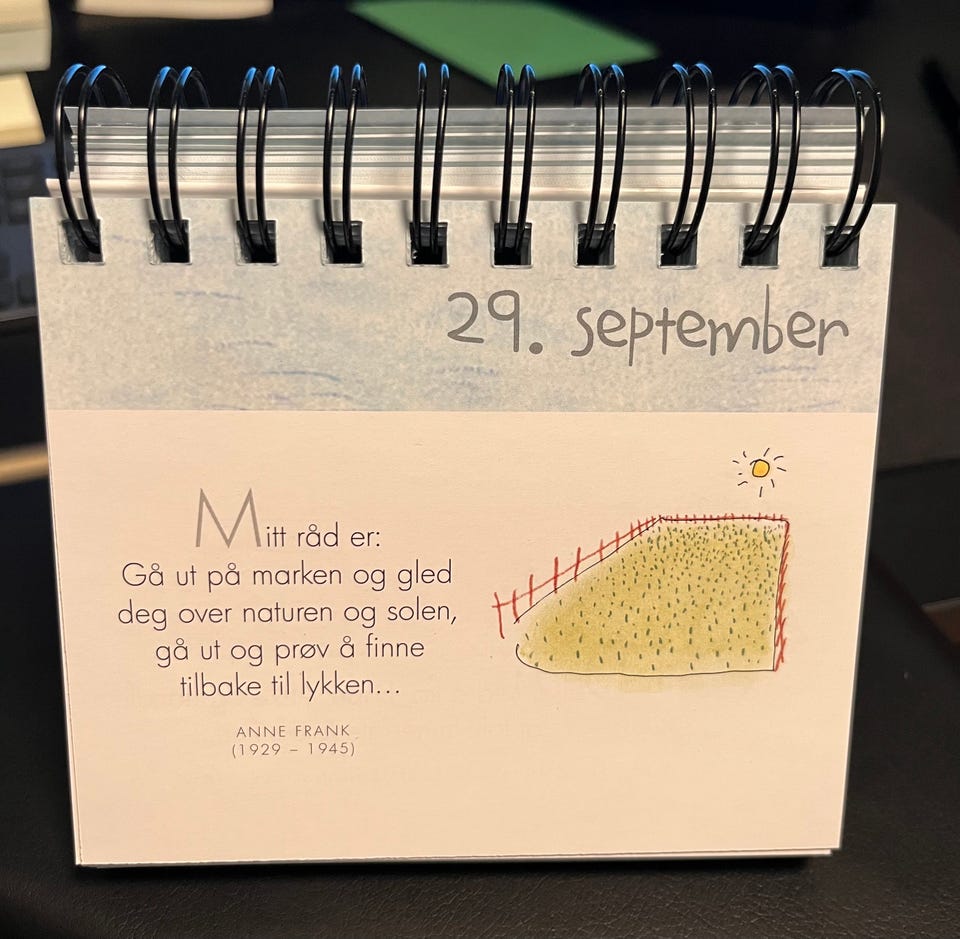 29. september
Mitt råd er:
Gå ut på marken og gled
deg over naturen og solen,
gå ut og prøv å finne
tilbake til lykken...
ANNE FRANK
(1929 – 1945)